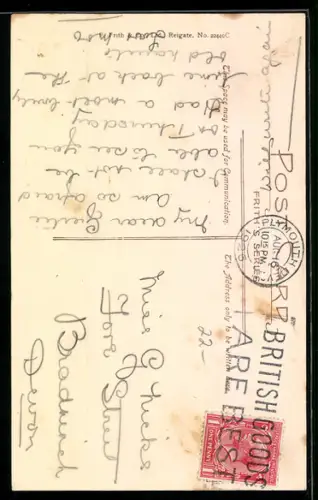 POST CARD
FRITH'S SERIES
This space may be used for communication.
The address only to be written here.
My dear Gertie
Am so afraid
I shall not be
able to see you
on Thursday
Had a most lovely
time back at the
old haunts
Reigate. No.
PLYMOUTH
10.15 PM
AUG
BRITISH GOODS
ARE BEST
22-
Miss G Hicks
Fore Street
Bradninch
Devon